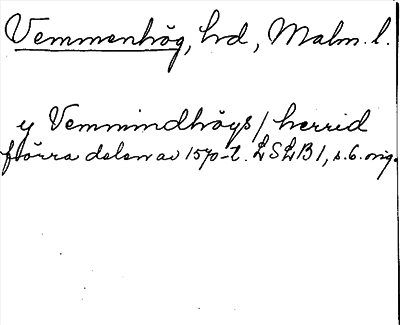 Vemmenhög, hd, Malm. l.
y Vemmindhögs/herrid
förra delen av 1570-t. LSLB 1, s. 6. orig.